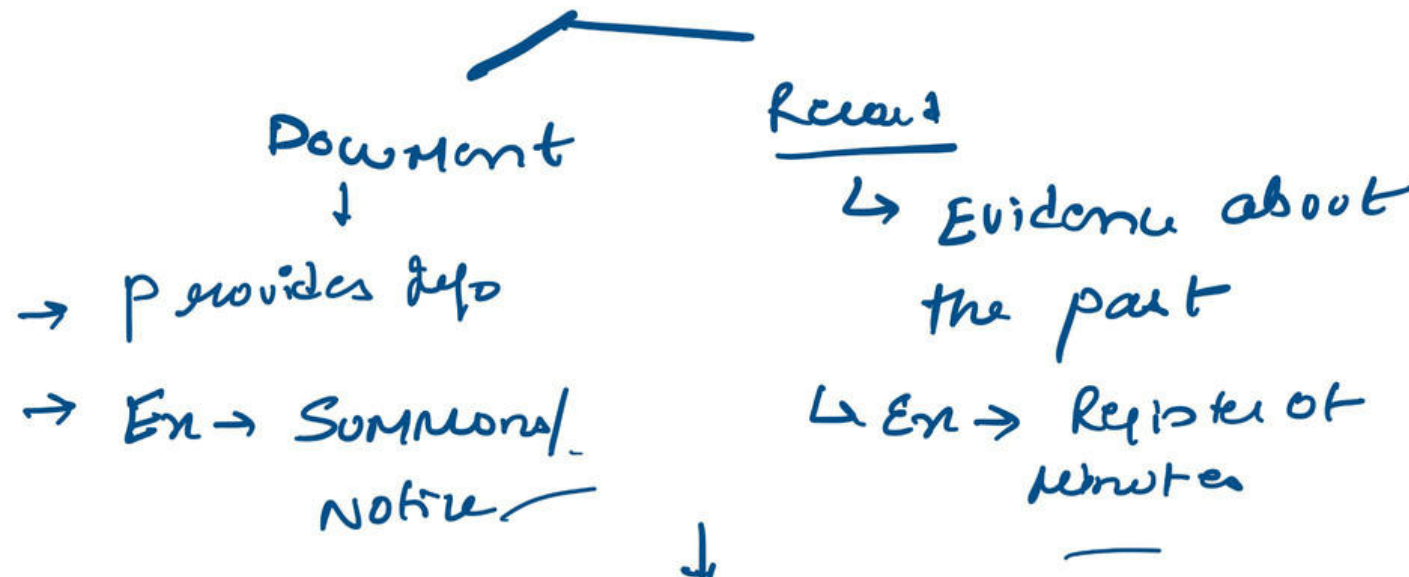 Document
→ Provides Info
→ Ex → Summons/
Notice
Record
↳ Evidence about
the past
↳ Ex → Register of
Minutes